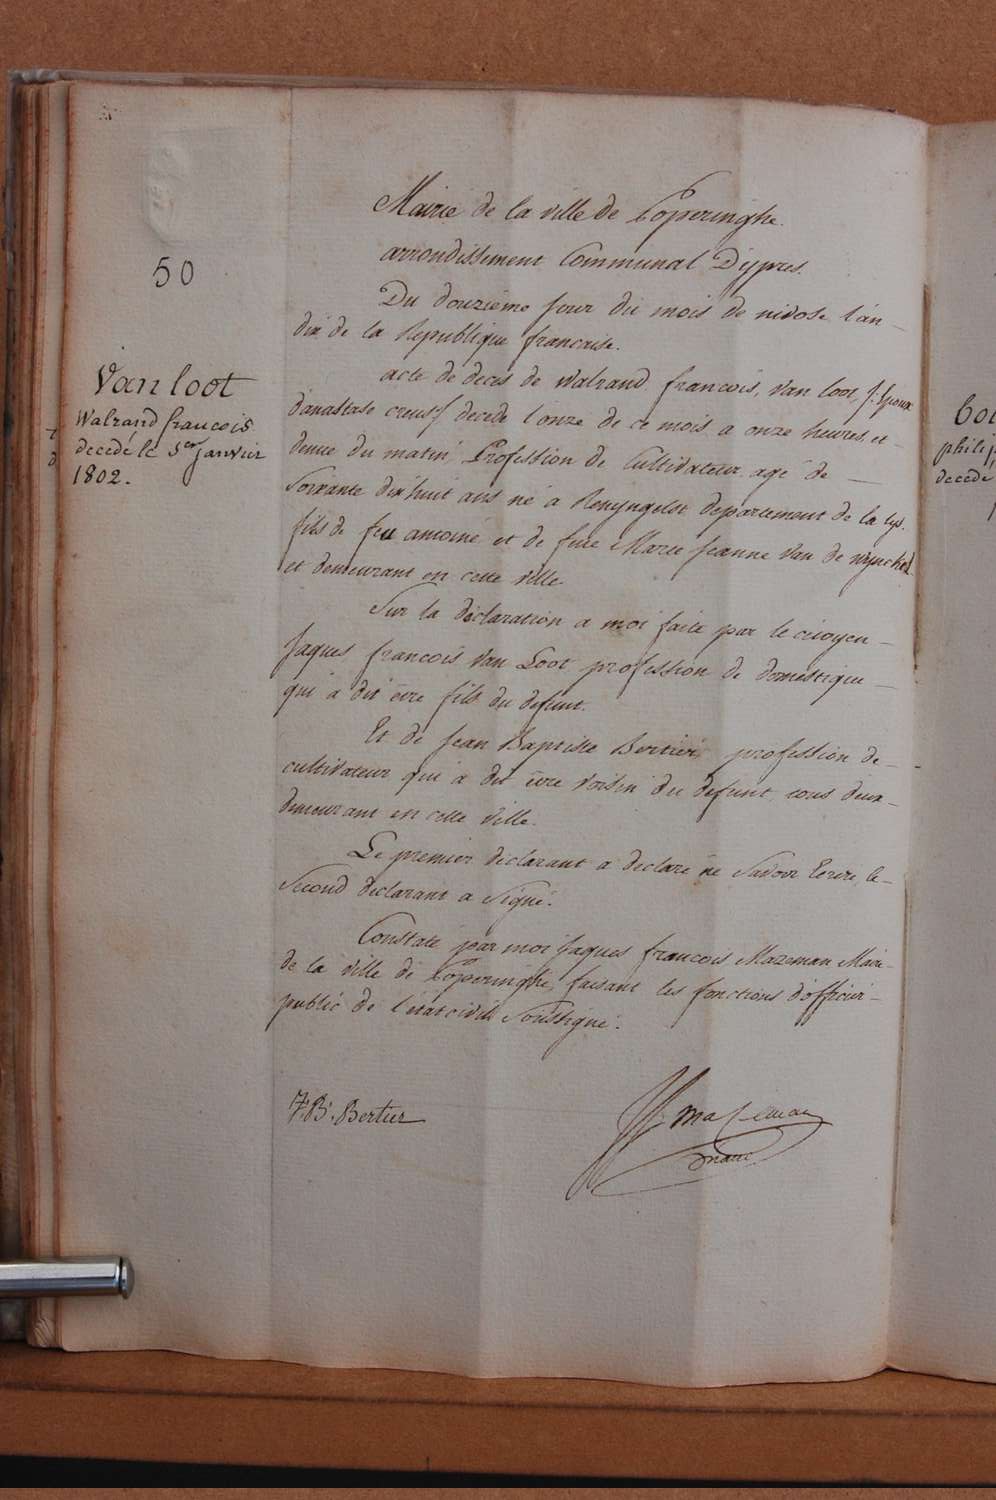 50
Van loot
Walrand francois
decede le 1er janvier
1802.
Mairie de la ville de Poperinghe.
arrondissement Communal D'ypres.
Du douzième jour du mois de nivose l'an
dix de la Republique francaise.
acte de deces de walrand francois, van loot,
danastase creus decede l'onze de ce mois a onze heures et
demie du matin Profession de Cultivateur agé de
Soixante dixhuit ans né a Renyngelst departement de la lys.
fils de feu antoine et de feue Marie Jeanne van de
et demeurant en cette ville
Sur la déclaration a moi faite par le citoyen
Jaques francois van Loot profession de domestique
qui a dit être fils du defunt.
Et de Jean Baptiste Bertier profession de
cultivateur qui a dit être voisin du defunt tous deux
demeurant en cette ville.
Le premier declarant a declaré ne Savoir Ecrire, le
Second declarant a Signé.
Constaté par moi Jaques francois Mazeman Maire
de la ville de Poperinghe, faisant les fonctions d'officier
public de l'etat civil Soussigné.
J:B: Bertier
Mazeman
maire
decede